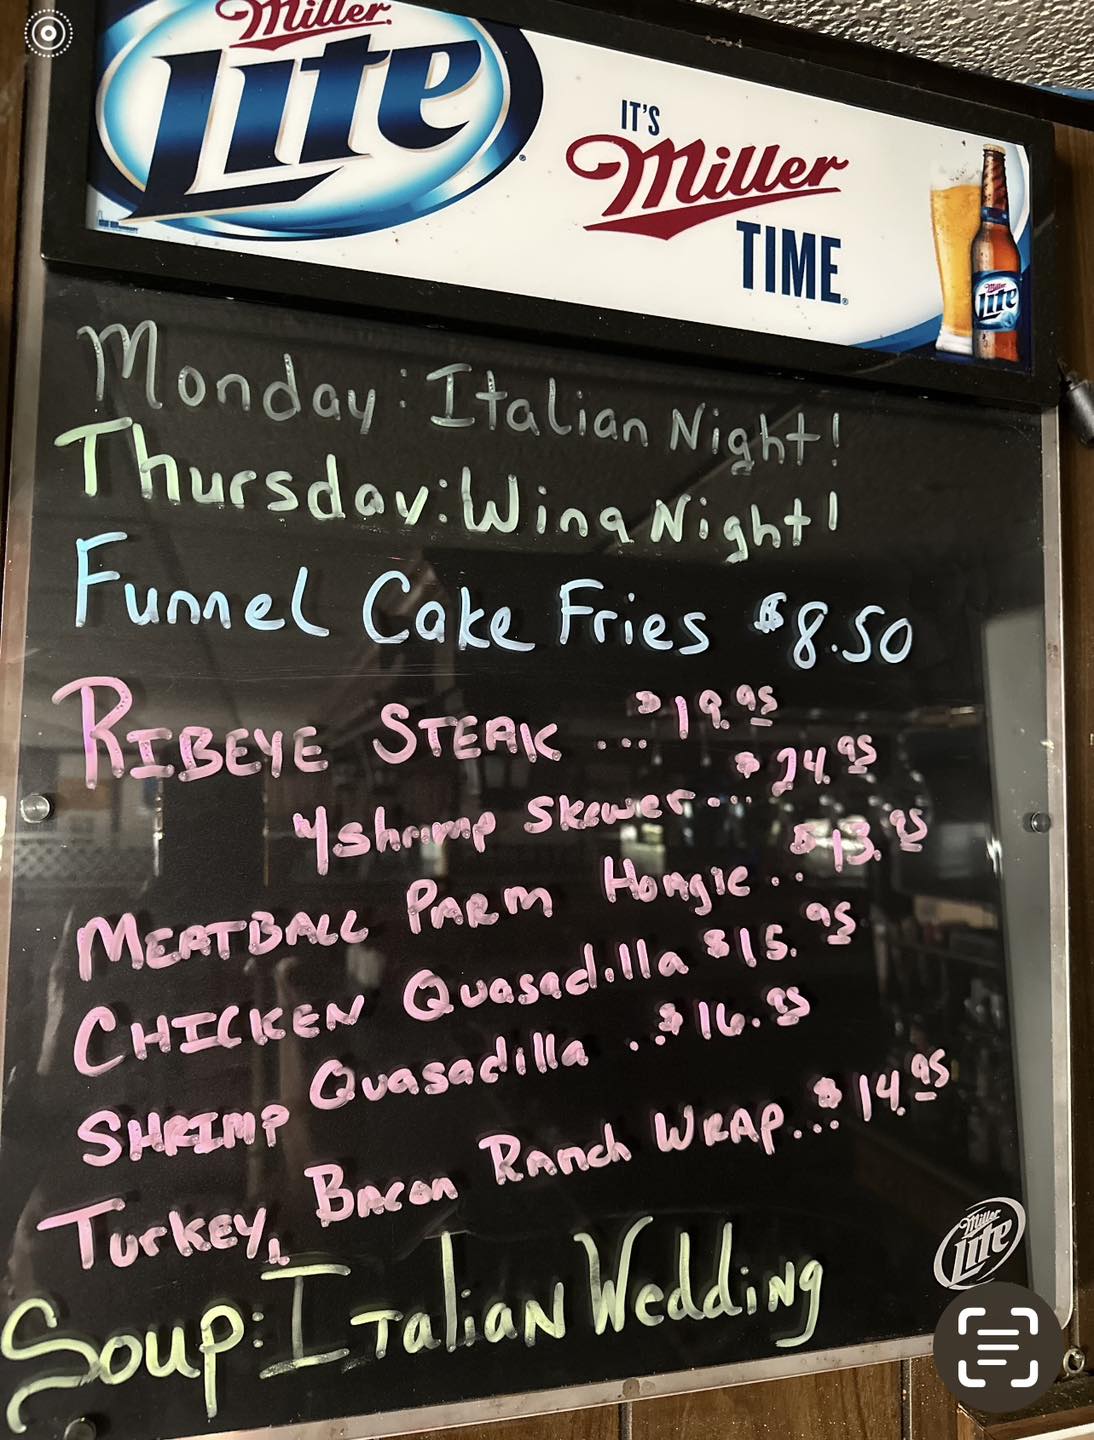 Miller
Lite
IT'S
Miller
TIME
Miller
Lite
Monday: Italian Night!
Thursday: Wing Night!
Funnel Cake Fries $8.50
RIBEYE STEAK ... $19.95
4 shrimp skewer... $24.95
MEATBALL PARM Hoagie... $13.95
CHICKEN Quasadilla $15.95
SHRIMP Quasadilla ... $16.95
Turkey, Bacon Ranch WRAP... $14.95
Soup: Italian Wedding
Miller
Lite